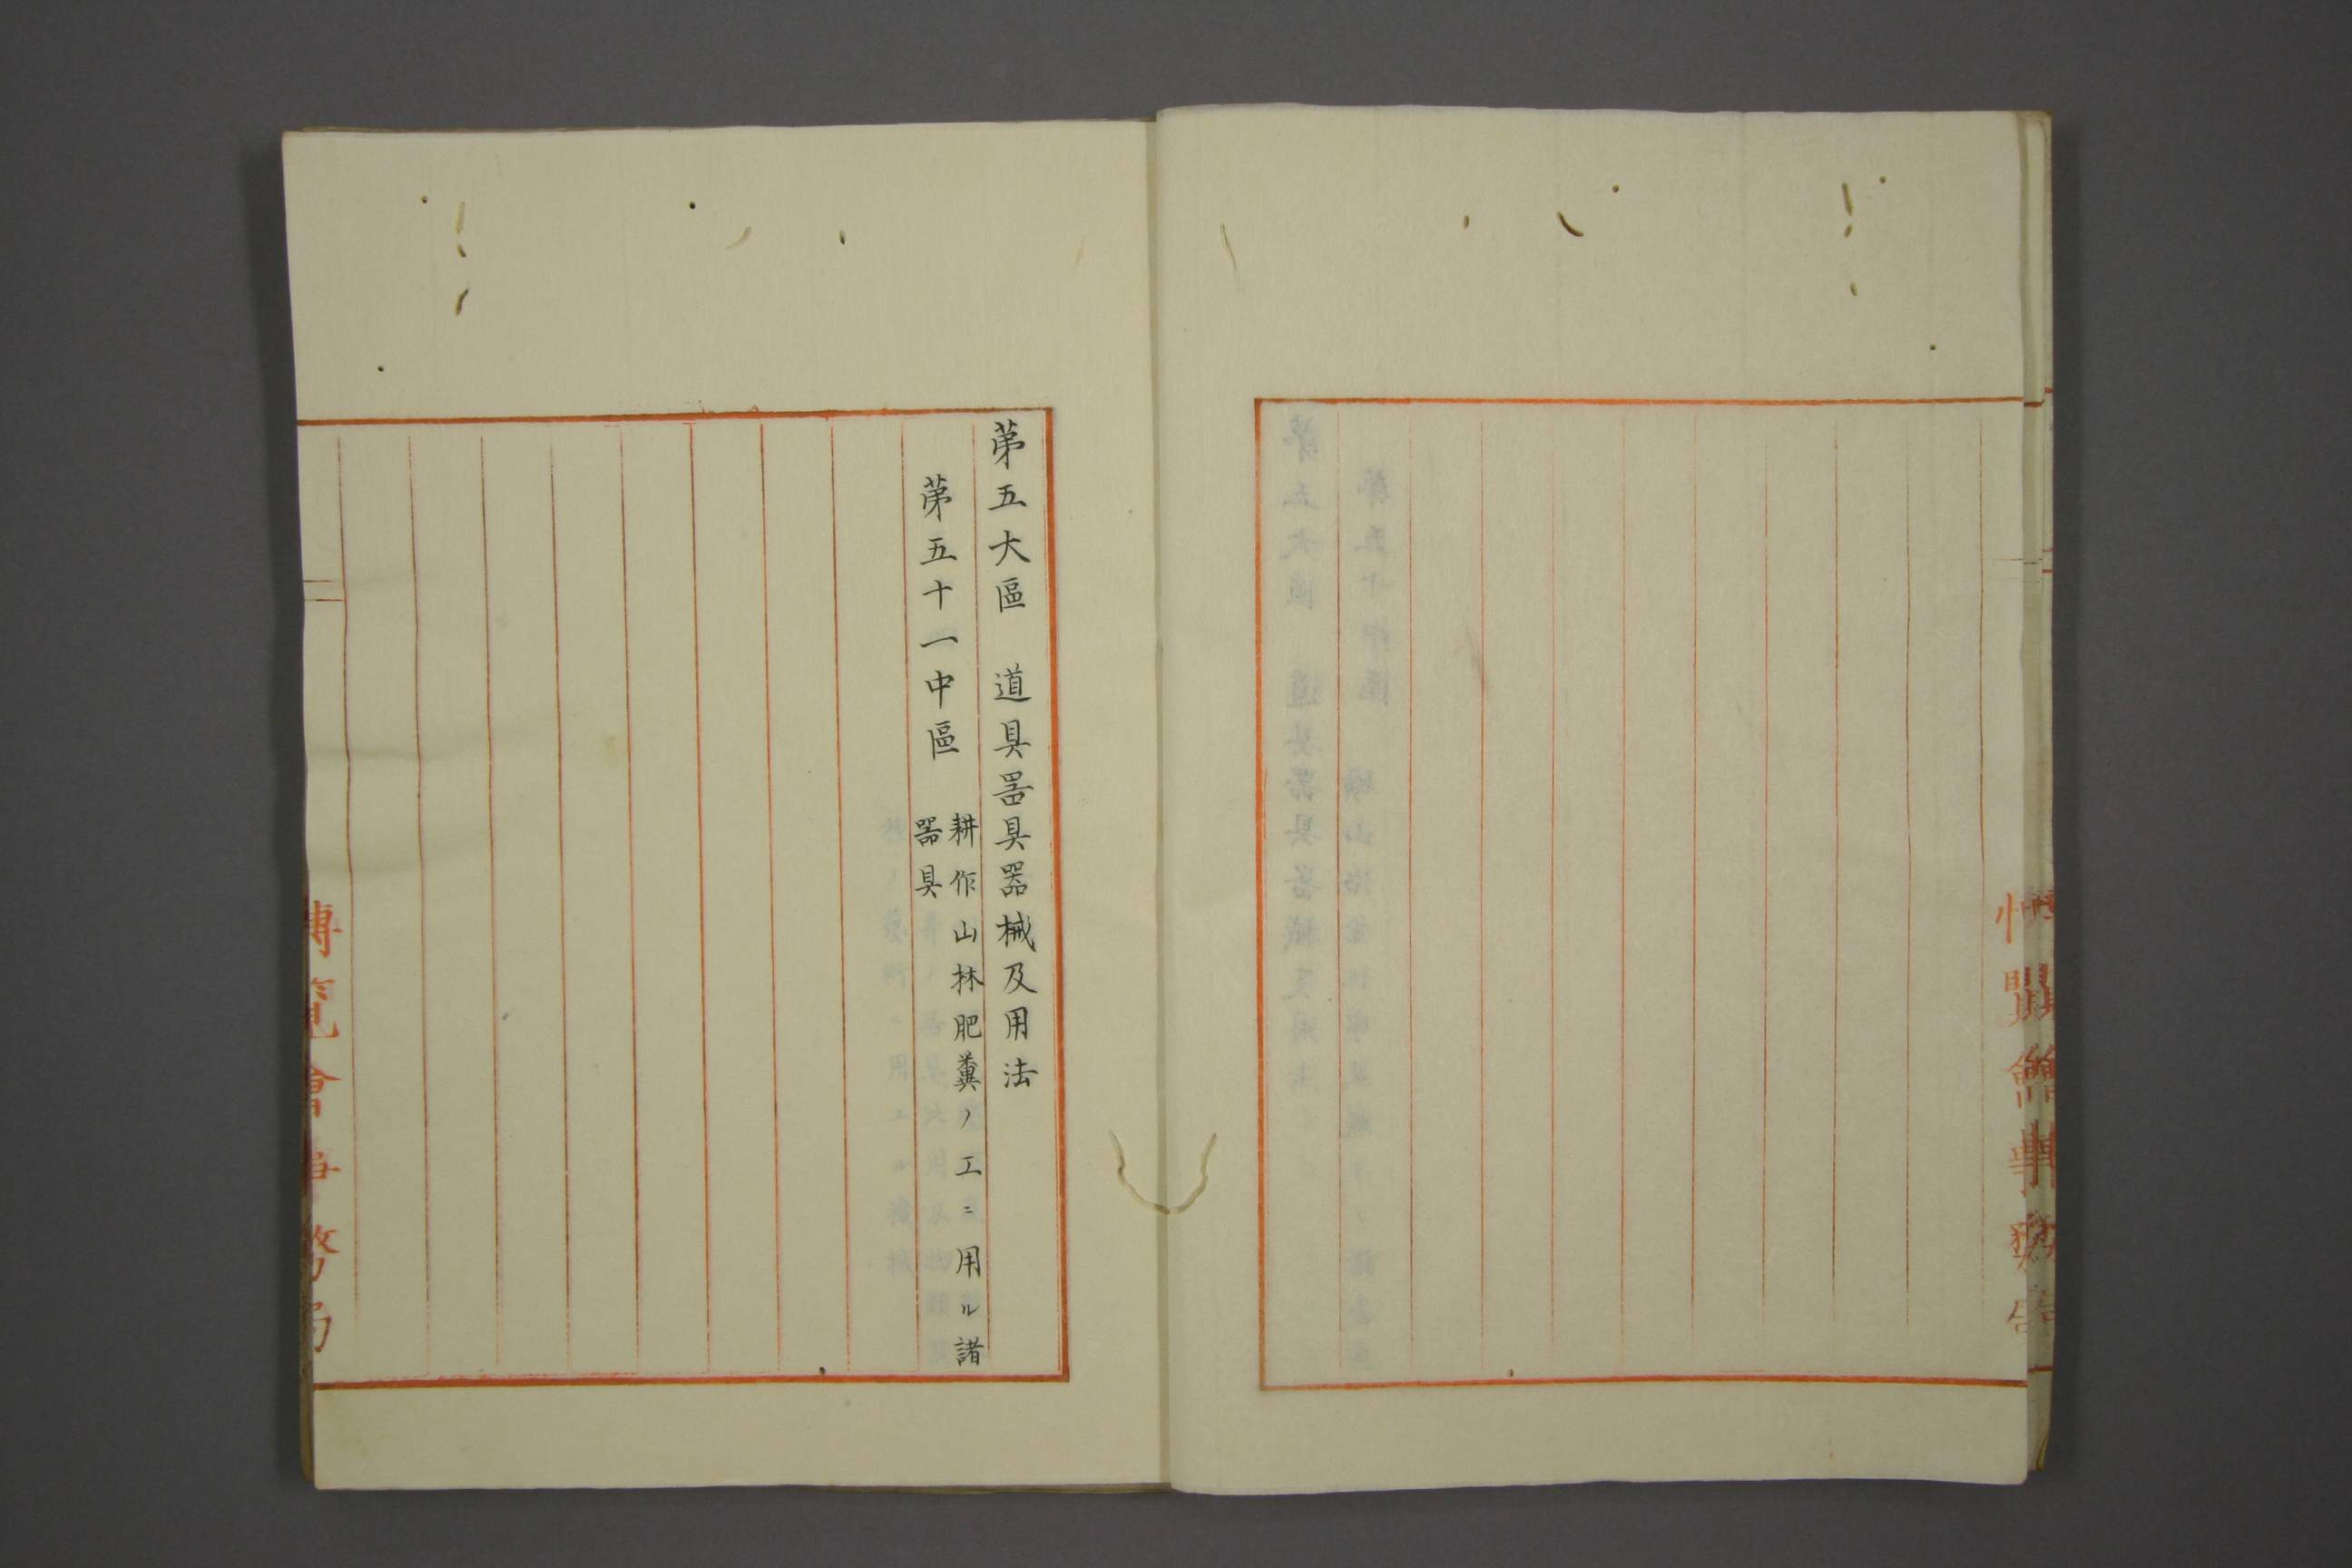 第五大區　道具噐具器械及用法
第五十一中區　耕作山林肥糞ノ工ニ用ル諸
噐具
博覽會事務局